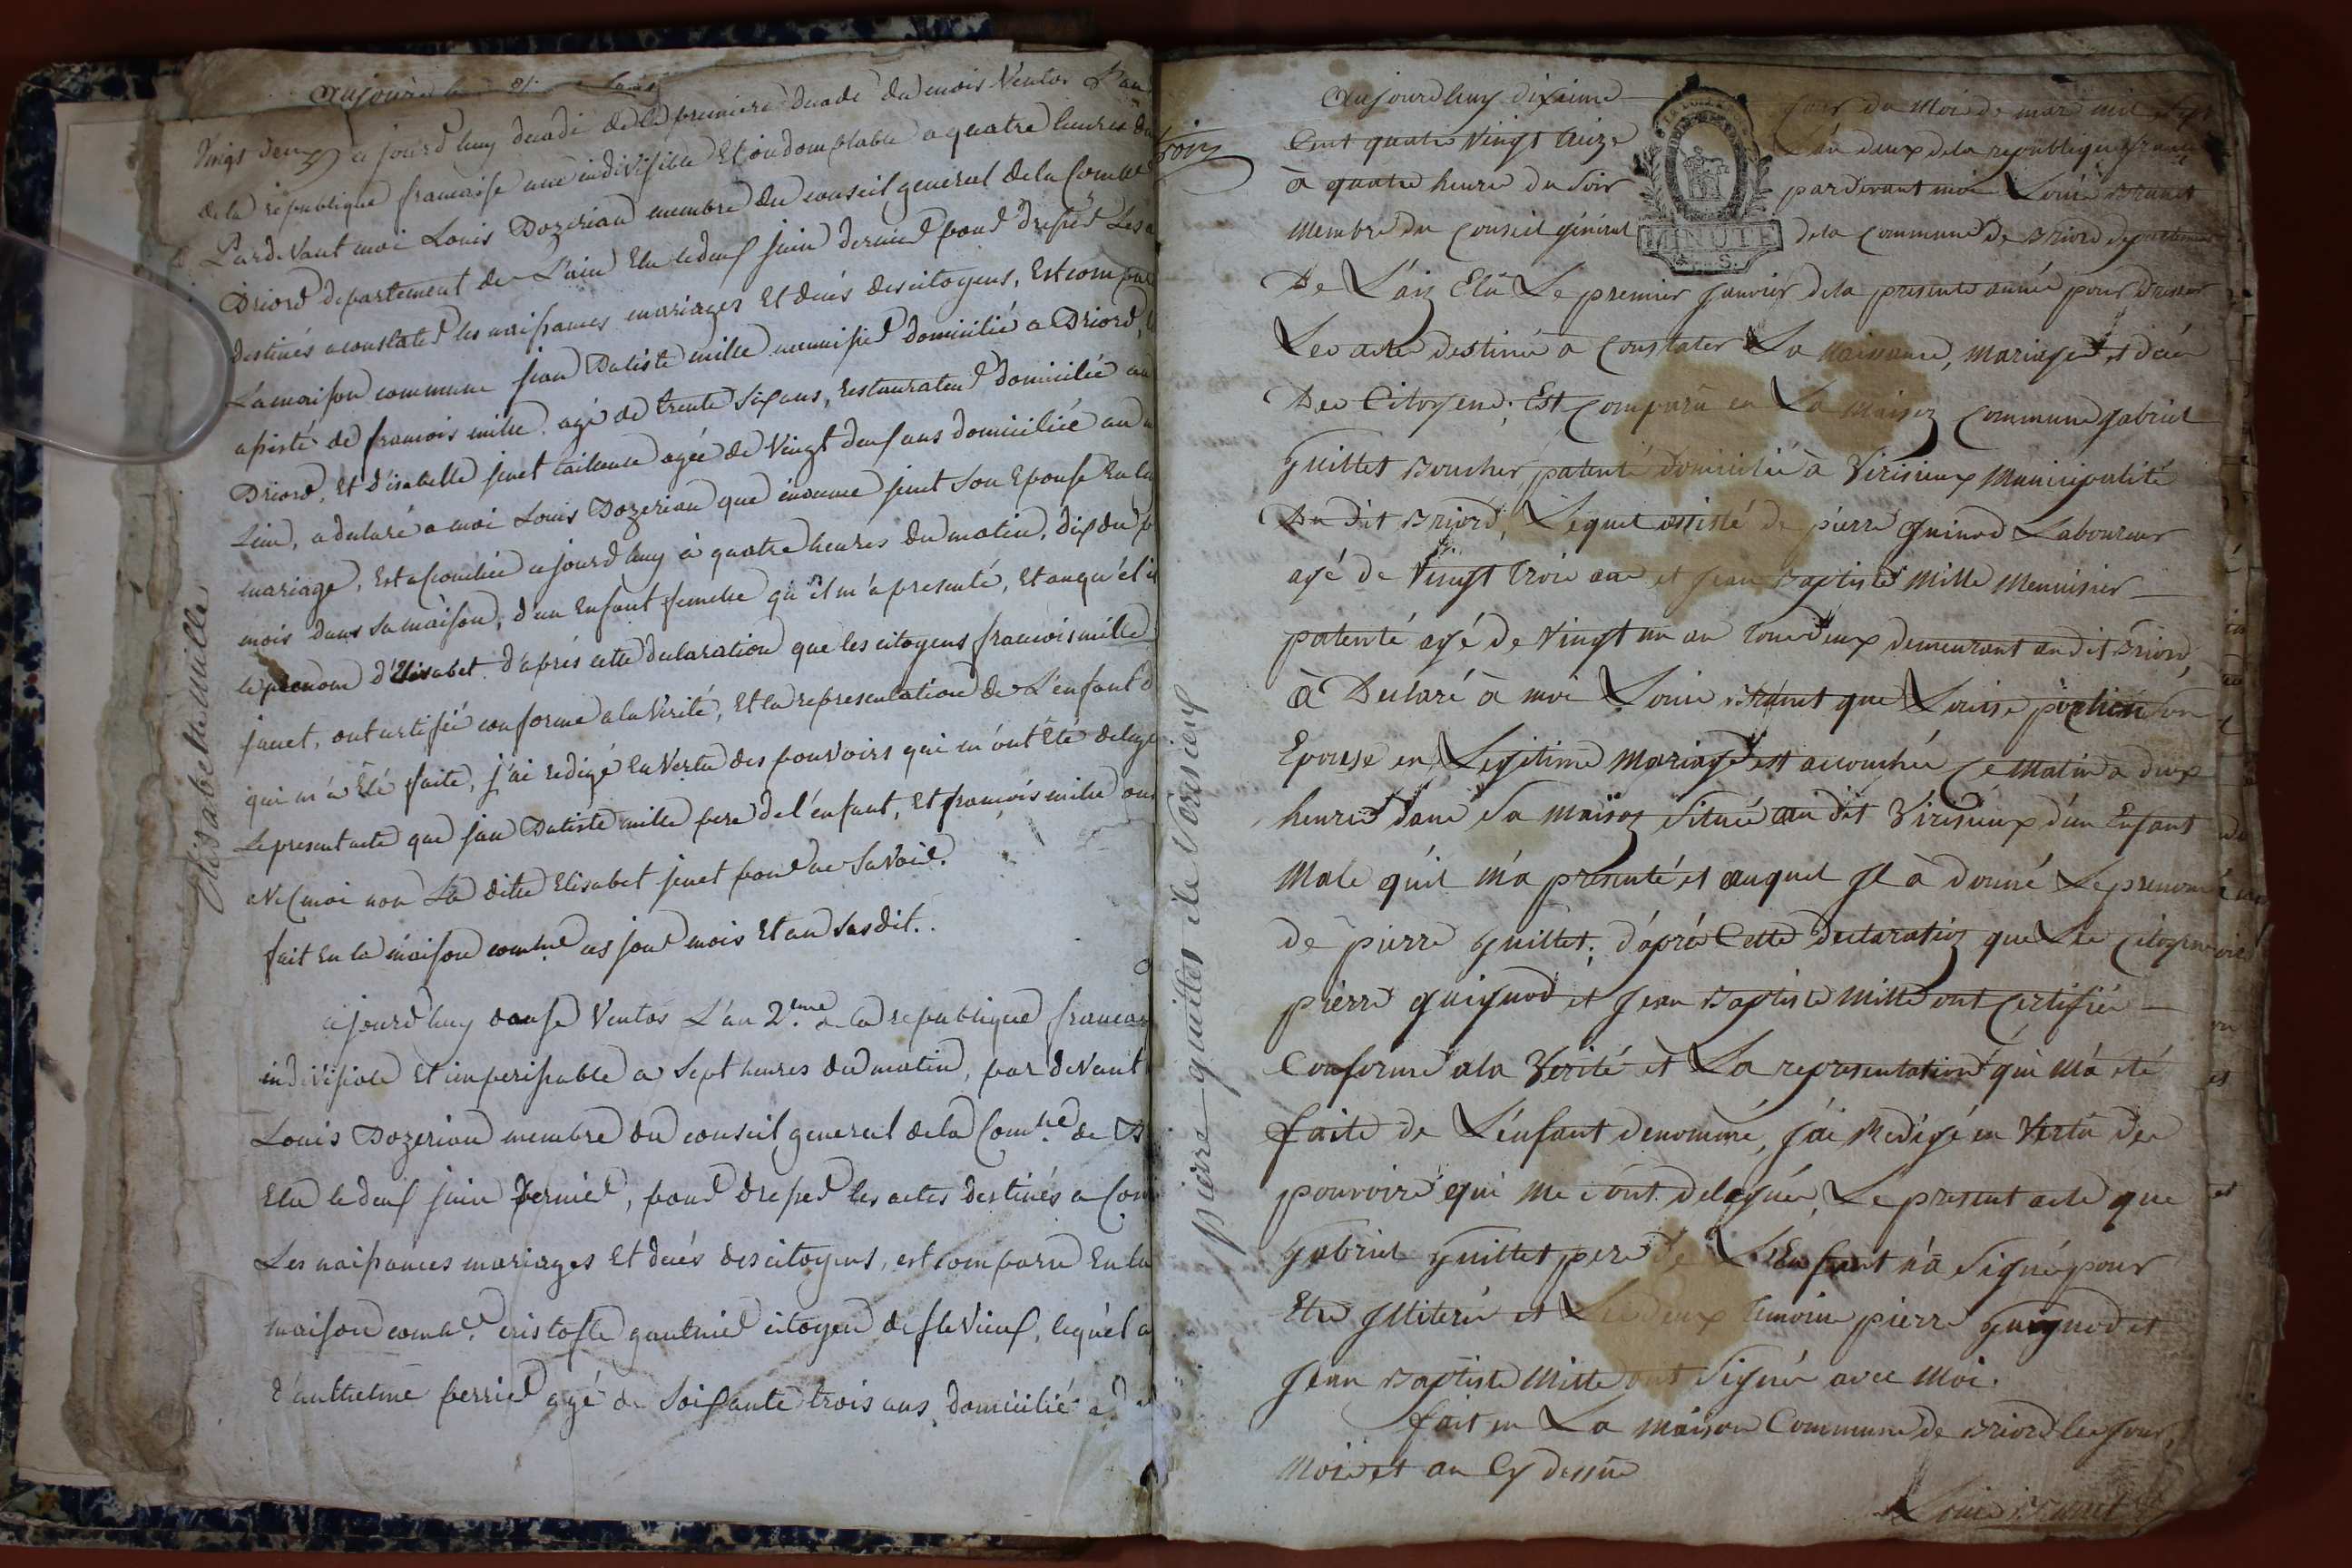 Aujourd
Vingt deux ajourd huy decadi de la premiere decade du mois Ventos L'an
de la republique francaise une indivisible Et indomptable a quatre heures du
Pardevant moi Louis Dozerian membre du conseil general de la Comune
Briord departement de L'ain Elu le deux juin dernier pour dresser Les a
destinés a constater les naissances mariages Et decés des citoyens, Est compar
La maison commune jean Batiste mille menuisier domicilié a Briord,
assisté de francois mille agé de trente six ans, restaurateur domicilié au
Briord, Et d'isabelle juret tailleuse agée de Vingt deux ans domiciliée au m
Lieu, a declaré a moi Louis Dozerian que juret Son Epouse En
mariage, Est accouchée ajourd huy à quatre heures du matin, dix du p
mois dans sa maison, d'un Enfant femelle qu'il m'a presenté, Et auquel il
le prenom d'Elisabet. d'aprés cette declaration que les citoyens francois mille
juret, ont certifié conforme a la Verité, Et la representation de L'enfant d
qui m'a Eté faite, j'ai redigé En Vertu des pouvoirs qui m'ont Eté delegé
Le present acte que jean Batiste mille pere de l'enfant, Et francois mille ont
avec moi non La ditte Elisabet juret pour ne Savoir.
fait En la maison comune les jour mois Et an susdit.
Elisabeta mille
ajourd huy douse Ventos L'an 2.eme de la republique francai
indivisible Et imperissable a Sept heures du matin, par devant
Louis Dozerian membre du conseil general de la Comune de B
Elu le deux juin dernier, pour dresser les actes destinés a Con
Les naissances mariages Et decés des citoyens, est comparu En la
maison comune cristofle gautier citoyen de fle Vieux, lequel a
d'anthelme perrier agé de Soixante trois ans domicilié a
Aujourdhuy dixieme jour du Mois de mars mil Sept
Cent quatre Vingt treize L'an deux de la republique francaise
à quatre heure du Soir pardevant moi Louis Brunet
Membre du Conseil général de la Commune de Briord departement
MINUTE
De L'ain Elû Le premier Janvier de la presente année pour dresser
Les actes destinés a Constater La Naissance, Mariages et décès
Des Citoyens; Est Comparu en La Maison Commune Gabriel
Guillet Boucher patenté domicilié à Virisieux Municipalité
Du dit Briord, Lequel assisté de pierre Guinod Laboureur
agé de Vingt trois ans et Jean Baptiste Mille Menuisier
patenté agé de Vingt un an tous deux demeurant au dit Briord,
à Declaré à moi Louis Brunet que Louise son
Epouse en Legitime Mariage est accouchée Ce Matin a deux
heures dans Sa Maison Située au dit Virisieux d'un Enfant
Male qu'il m'a presenté et auquel Il à donné Le prenom
de pierre Guillet; d'aprés Cette declaration que Les Citoyens
pierre guignod et Jean Baptiste Mille ont Certifiée
Conforme a la Verité et La representation qui M'a eté
faite de L'enfant denommé, J'ai Redigé en Vertu des
pouvoirs qui Me sont delegués, Le present acte que
Gabriel Guillet pere de L'Enfant n'à Signé pour
Etre Illiteré et Les deux temoins pierre guignod et
Jean Baptiste Mille ont Signés avec Moi.
fait en La Maison Commune de Briord les Jour,
Mois et an Cy dessus
Louis Brunet
pierre guillet de Voirisieux